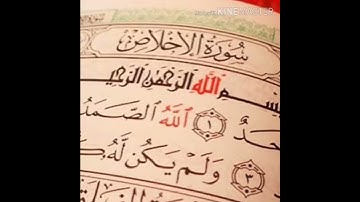 KINEMASTER
سُورَةُ الإِخْلَاصِ
ـسْمِ اللَّهِ الرَّحْمَٰنِ الرَّحِيـ
ـحَدٌ ١ اللَّهُ الصَّمَدُ
٣ وَلَمْ يَكُن لَّهُ